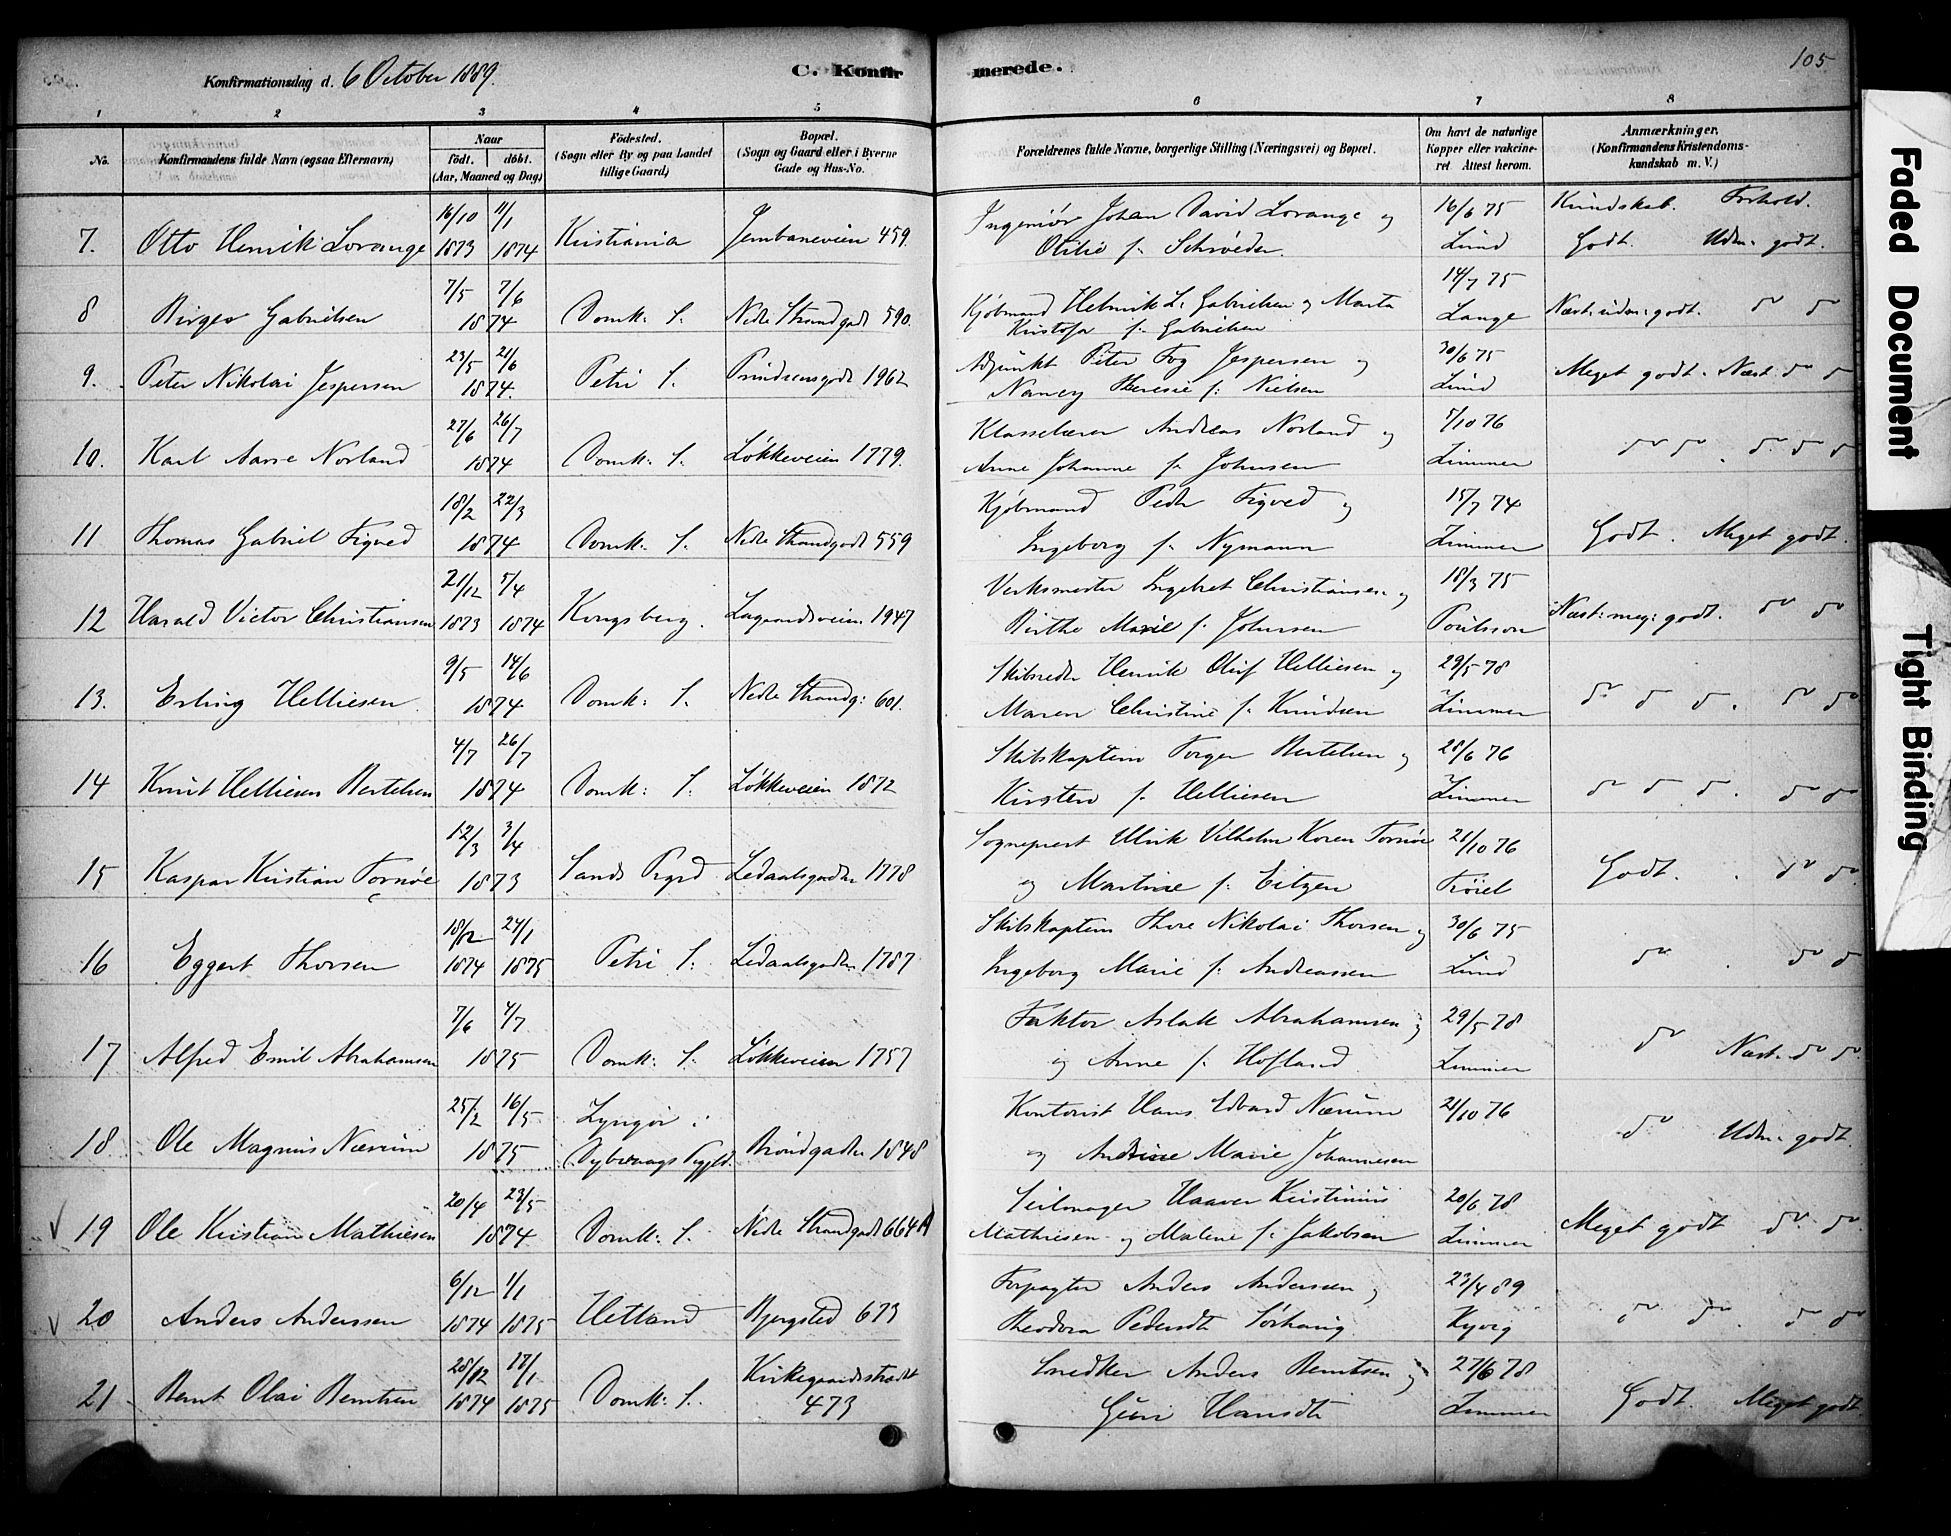 Konfirmationsdag d. 6 October 1889.
C. Konfirmerede.
105
1 2 3 4 5 6 7 8
No.
Konfirmandens fulde Navn (ogsaa Efternavn)
Naar
født. døbt.
(Aar, Maaned og Dag)
Födested.
(Sogn eller By og paa Landet
tillige Gaard)
Bopæl.
(Sogn og Gaard eller i Byerne
Gade og Hus-No.
Forældrenes fulde Navne, borgerlige Stilling (Næringsvei) og Bopæl.
Om havt de naturlige
Kopper eller vakcine-
ret. Attest herom.
Anmærkninger.
(Konfirmandens Kristendoms-
kundskab m. V.)
16/10 11/1 Ingeniör Johan David Lorange og 16/6 75 Kundskab. Forhold.
7. Otto Henrik Lorange 1873 1874 Kristiania Jernbaneveien 459. Otilie f. Schrøeder. Lund Godt. Udm. godt.
7/5 7/6 14/7 75
8 Birger Gabrielsen 1874 Domk: S. Nedre Strandgade 590. Kjøbmand Helmik L. Gabrielsen og Marta Lange Næst: udm: godt. do do
Kristofa f. Gabrielsen
23/5 21/6 Adjunkt Peter Fog Jespersen og 30/6 75
9. Peter Nikolai Jespersen 1874. Petri S. Prindsensgade 1962 Nancy Theresie f: Nielsen Lund Meget godt. Næst: do do
27/6 26/7 Klasselærer Andreas Norland og 7/10 76
10. Karl Aarre Norland 1874 Domk: S. Løkkeveien 1779. Anne Johanne f. Johnsen Zimmer do do. do do do
18/2 22/3 Kjøbmand Peder Figved og 15/7 74
11 Thomas Gabriel Figved 1874 Domk: S. Nedre Strandgade 559 Ingeborg f. Nymann Zimmer Godt. Meget godt.
21/12 5/4 Verksmester Ingebret Christiansen og 18/3 75
12 Harald Victor Christiansen 1873 1874 Kongsberg. Lagaardsveien 1947 Birthe Marie f. Johnsen Poulsson Næst: meg: godt. do do
9/5 14/6 Skibsreder Henrik Oluf Helliesen og 29/5 78
13. Erling Helliesen 1874 Domk: S. Nedre Strandg: 601. Maren Christine f. Knudsen Zimmer do do do. do do
4/7 26/7 Skibskaptein Torger Bertelsen og 28/6 76
14 Knut Helliesen Bertelsen 1874 Domk: S. Løkkeveien 1872 Kirsten f. Helliesen Zimmer do do do. do do
12/3 3/4 Sogneprest Ulrik Vilhelm Koren Tornøe 21/10 76
15 Kaspar Kristian Tornøe 1873 Sands Prgd Ledaalsgaden 1778 og Martine f. Eitzen Krøiel Godt. do do.
18/12 24/1 Skibskaptein Thore Nikolai Thorsen og 30/6 75
16 Eggert Thorsen 1874 1875 Petri S. Ledaalsgaden 1787 Ingeborg Marie f. Andreassen Lund do. do do
7/6 4/7 Faktor Aslak Abrahamsen og 29/5 78
17 Alfred Emil Abrahamsen 1875 Domk: S. Løkkeveien 1757 og Anne f. Hofland Zimmer do Næst: do do
25/2 16/5 Lyngør i Kontorist Hans Edvard Nærum 21/10 76
18 Ole Magnus Nærum 1875 Dybevaags Prgjld. Brøndgaden 1848 og Andrine Marie Johannesen do Udm. godt.
20/4 23/5 Seilmager Haaver Kristinius 20/6 78
V 19 Ole Kristian Mathiesen 1874 Domk: S. Nedre Strandgade 664 A Mathiesen og Malene f. Jakobsen Zimmer Meget godt do do.
6/12 1/1 Forpagter Anders Anderssen og 23/4 89
V 20 Anders Anderssen 1874 1875 Hetland Bjergsted 673 Theodora Pedersdt Sørhaug Kyvig do do. do do
28/12 17/1 Kirkegaardsstrædet Snedker Anders Berntsen og 27/6 78
21 Bernt Olai Berntsen 1874 1875 Domk: S. 473 Guri Hansdt Zimmer Godt. Meget godt
Faded Document
Tight Binding